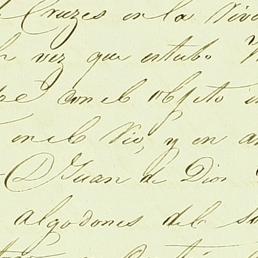 Cruzes en la Viv
vez que estubo
con el objeto
en el Rio, y en
D Juan de Dios
algodones del